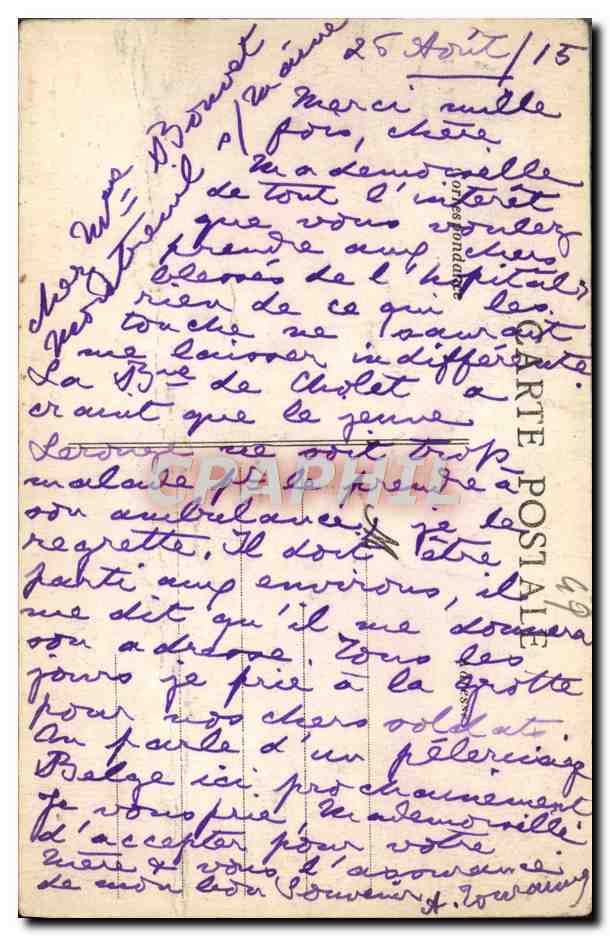 26 Août / 15
Merci mille
fois, chère
Mademoiselle
de tout l'intérêt
que vous voulez
prendre aux chers
blessés de l'hôpital,
rien de ce qui les
touche ne saurait
me laisser indifférente
La Bnne de Cholet a
craint que le jeune
ne soit trop
malade pr le prendre à
son ambulance, je le
regrette. Il doit être
parti aux environs, il
me dit qu'il me donnera
son adresse. Tous les
jours je prie à la grotte
pour nos chers soldats
On parle d'un pèlerinage
Belge ici prochainement
Je vous prie, Mademoiselle
d'accepter pour votre
Mère & vous l'assurance
de mon bon Souvenir A.
chez Mme Bouvet
Montreuil s/ Maine
Correspondance
CARTE POSTALE
Adresse
M
49
CPAPHIL